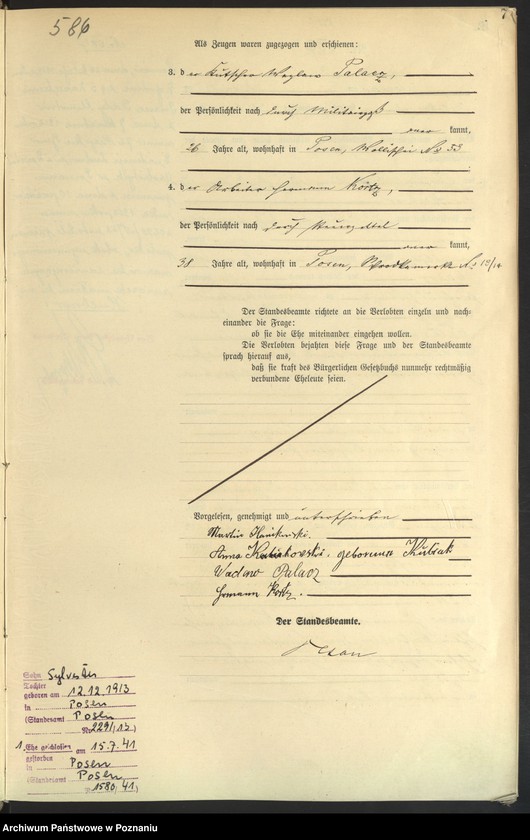 586
7
Als Zeugen waren zugezogen und erschienen:
3. der Kutscher Wazlaw Palacz,
der Persönlichkeit nach durch Militairpaß
kannt,
26 Jahre alt, wohnhaft in Posen, Wallischei No 33
4. der Arbeiter Hermann Körtz,
der Persönlichkeit nach durch
kannt,
38 Jahre alt, wohnhaft in Posen, No 13/14
Der Standesbeamte richtete an die Verlobten einzeln und nach-
einander die Frage:
ob sie die Ehe miteinander eingehen wollen.
Die Verlobten bejahten diese Frage und der Standesbeamte
sprach hierauf aus,
daß sie kraft des Bürgerlichen Gesetzbuchs nunmehr rechtmäßig
verbundene Eheleute seien.
Vorgelesen, genehmigt und unterschrieben
Martin
Anna geborene Kubiak
Waclaw Palacz
Hermann Körtz.
Der Standesbeamte.
Sohn Sylvester
Tochter
geboren am 12.12.1913
in Posen
(Standesamt Posen
Nr 2291/13)
1. Ehe geschlossen am 15.7.41
gestorben
in Posen
(Standesamt Posen,
1580/41.)
Archiwum Państwowe w Poznaniu